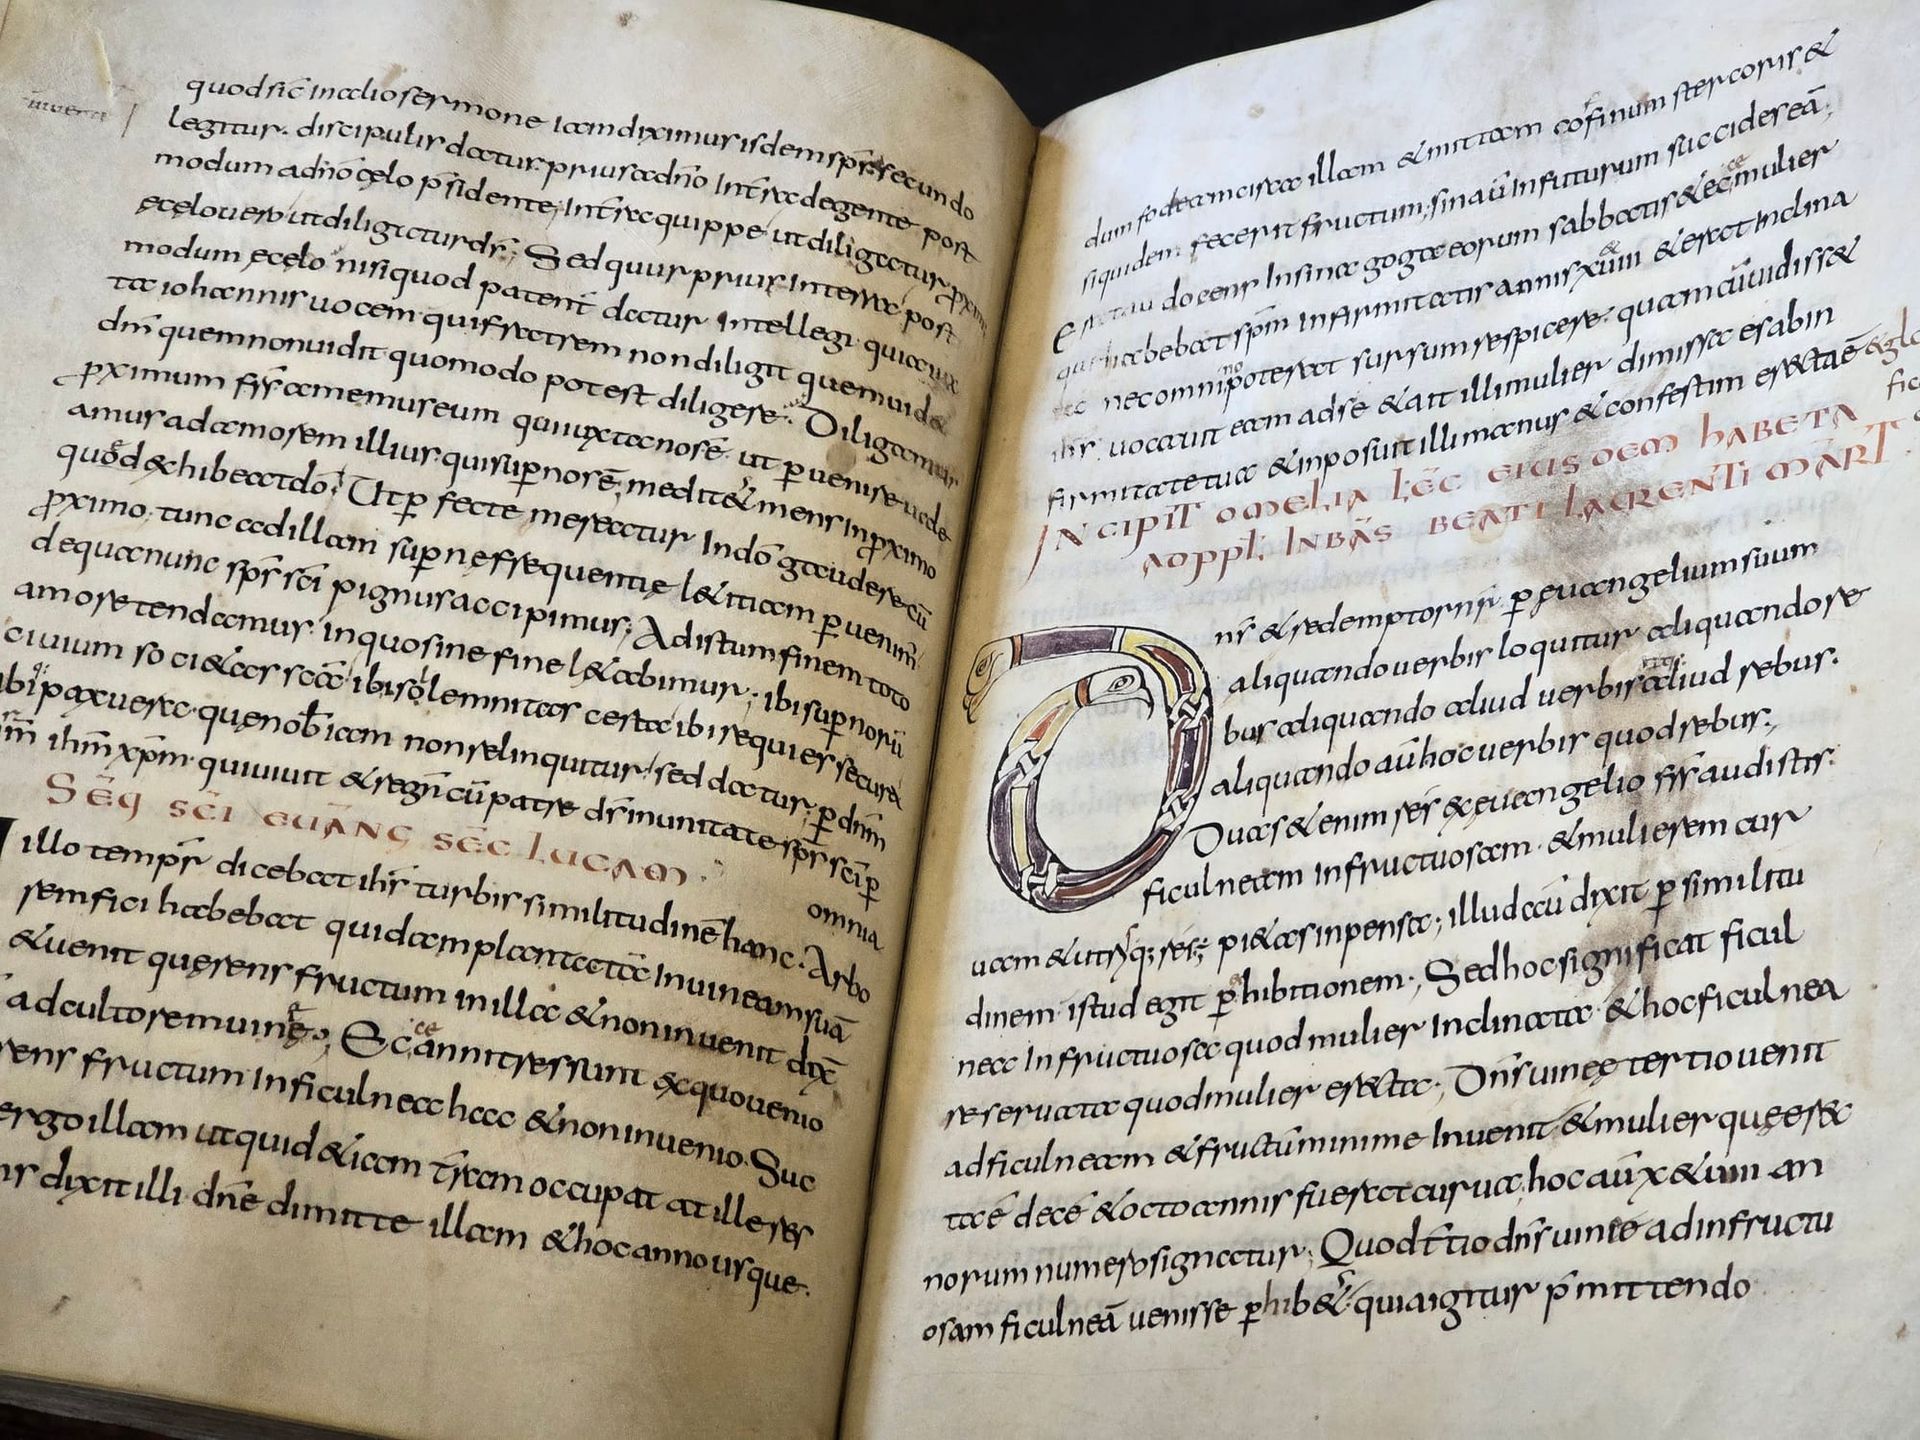 quod sic̄ in alio sermone iam diximus isdem sp̄s secundo
legitur. discipulis datur. prius a dn̄o in tr̄a degente post
modum a dn̄o cęlo p̄sidente; In tr̄a quippe ut diligatur p̄xim
ę cęlo uero ut diligatur ds̄; Sed quur prius in terra post
modum ę cęlo nisi quod patent̄ datur intellegi quia iux
ta iohannis uocem qui fratrem non diligit quem uid&
dm̄ quem non uidit quomodo potest diligere; Diligamus
p̄ximum frs̄ amemus eum qui iuxta nos ē. ut p̄uenire uale
amus ad amorem illius qui sup̄ nos ē; medit&ur mens in p̄ximo
quod exhibeat dō; Ut p̄fecte mereatur in dō gaudere cū
p̄ximo. tunc ad illam sup̄nę frequentię l&itiam p̄uenim̄
de qua nunc sp̄s sc̄i pignus accipimus; Ad istum finem toto
amore tendamus in quo sine fine l&abimur; ibi sup̄norū
ciuium soci&as sc̄a ibi solemnitas certa ibi requies secura
ibi pax uera. quę nob̄ iam non relinquitur sed datur; p̄ dn̄m
ihm̄ xp̄m qui uiuit & regn̄ cū patre ds̄ in unitate sp̄s sc̄i p̄
omnia
Seq̄ sc̄i euāng sec̄ lucam.
illo temp̄r dicebat ihs̄ turbis similitudinē hanc. Arbo
rem fici habebat quidam plantatā in uinea suā
& uenit quęrens fructum in illa & non inuenit dix̄
ad cultorem uinęę; Ecce anni tres sunt ex quo uenio
rens fructum in ficulnea hac & non inuenio. Suc
ergo illam ut quid &iam tr̄am occupat at ille res
dixit illi dn̄e dimitte illam & hoc anno usque.
dum fodeam circa illam & mittam cofinum stercoris &
siquidem fecerit fructum; sin aū in futurum succides eā;
docens in sinagoga eorum sabbatis & ecce mulier
habebat sp̄m infirmitatis annis xuiii & erat inclina
nec omnino poterat sursum respicere. quam cū uidiss&
ihs̄. uocauit eam ad se & ait illi mulier dimissa es ab in
firmitate tua & inposuit illi manus & confestim erecta ē & glo
INCIPIT OMELIA LĒC EIUSDEM HABETA
AD PPL̄. IN BĀS BEATI LAURENTI MĀRT
ns̄ & redemptor nr̄ p̄ euangelium suum
aliquando uerbis loquitur aliquando re
bus aliquando aliud uerbis aliud rebus.
aliquando aū hoc uerbis quod rebus;
Duas &enim res ex euangelio frs̄ audistis.
ficulneam infructuosam & mulierem cur
uam & utriq; rei; pi&as inpensa; illud aū dixit p̄ similitu
dinem. istud egit p̄hibitionem; Sed hoc significat ficul
nea infructuosa quod mulier inclinata. & hoc ficulnea
reseruata quod mulier erecta; Dn̄s uineę tertio uenit
ad ficulneam & fructū minime inuenit & mulier quę erec
ta ē decē & octo annis fuerat curua; hoc aū x & uiii an
norum numero signatur; Quod t̄tio dn̄s uinię ad infructu
osam ficulneā uenisse p̄hib&ur. quia igitur p̄mittendo